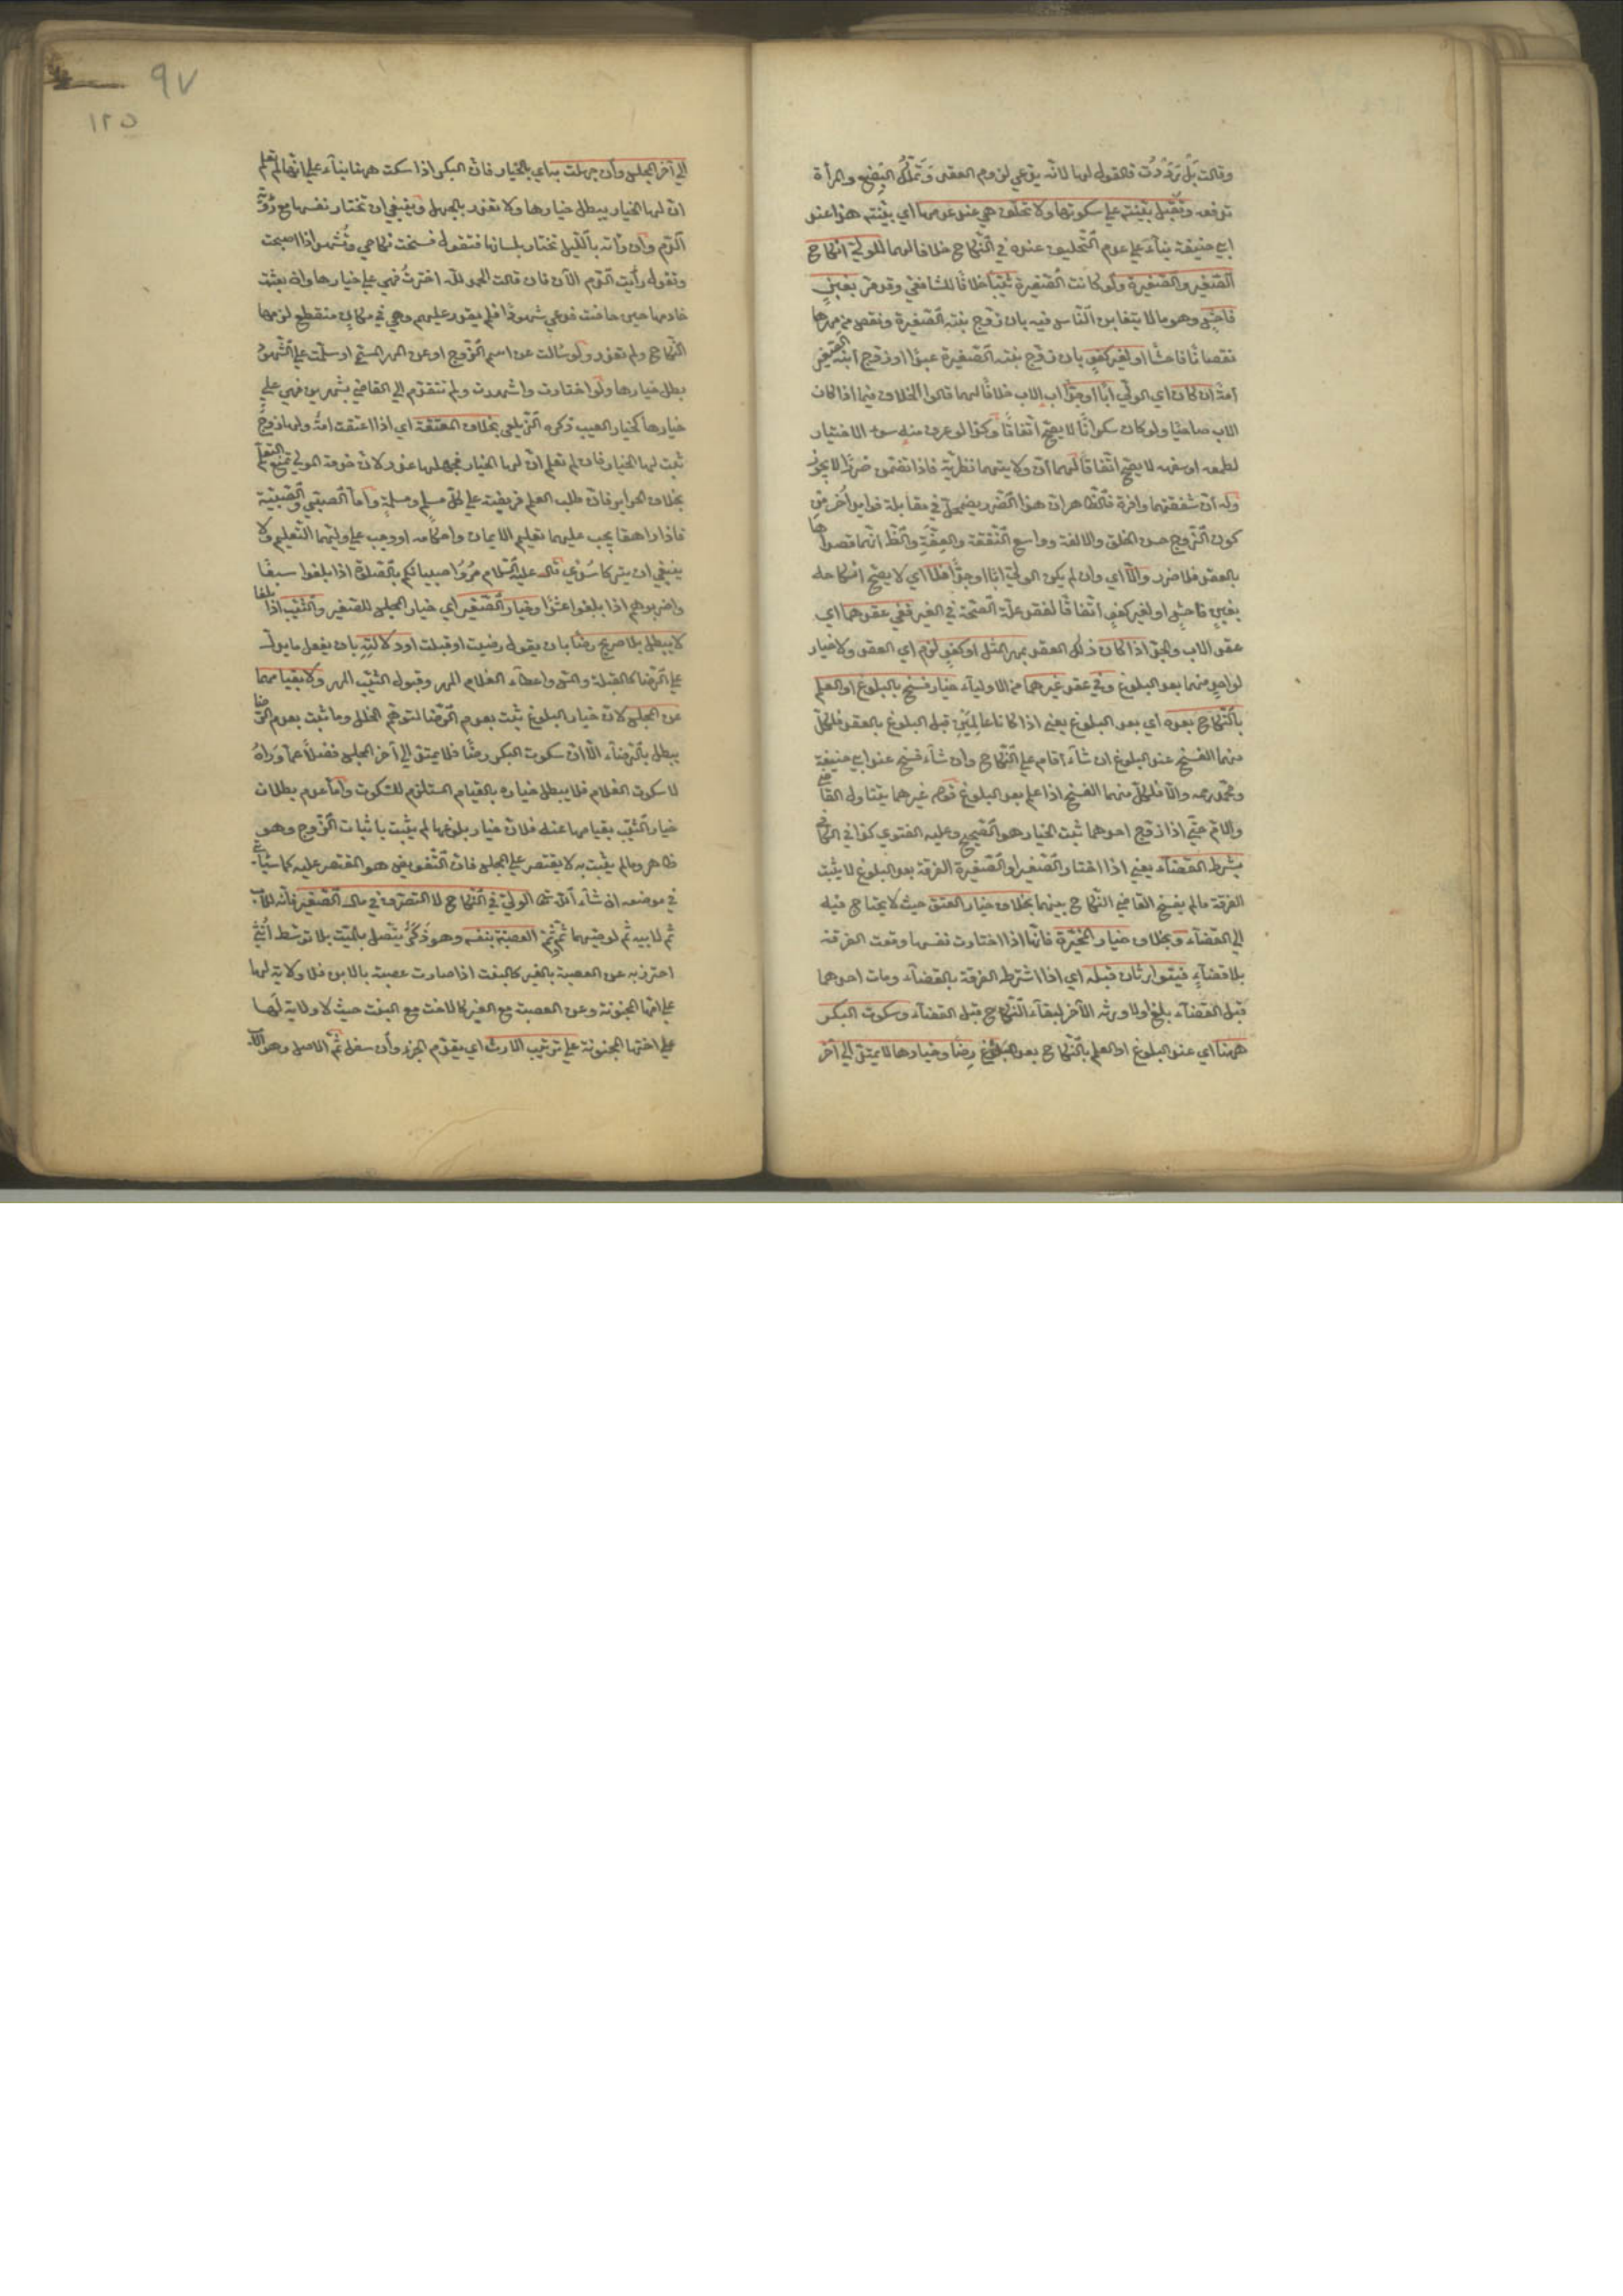 وقالت بل رَدَدْتُ فالقول لها لانه يدّعي لزوم العقد وتَمَلُّكَ البضع والمرأة
تدفعه وتُقبل بيّنته على سكوتها ولا تحلف هي عند عدمها اي بيّنته هذا عند
ابي حنيفة بناءً على عدم التحليف عنده في النّكاح خلافا لهما للوليّ انكاح
الصّغير والصّغيرة ولو كانت الصّغيرة ثيّبا خلافًا للشافعي وقد مرّ بغبنٍ
فاحشٍ وهو ما لا يتغابن النّاس فيه بان زوّج بنته الصّغيرة ونقص من مهرها
نقصانًا فاحشًا او لغير كفوٍ بان زوّج بنته الصّغيرة عبدًا او زوّج ابنه الصّغير
امةً ان كان اي الوليّ ابًا او جدًّا اب الاب خلافًا لهما قالوا الخلاف فيما اذا كان
الاب صاحيًا ولو كان سكرانًا لا يصحّ اتّفاقًا وكذا لو عرف منه سوء الاختيار
لطمعه او سفهه لا يصحّ اتّفاقًا لهما انّ ولايتهما نظريّة فاذا تضمّن ضررًا لا يجوز
وله انّ شفقتهما وافرة فالظاهر ان هذا الضّرر يضمحلّ في مقابلة فوايد اُخر من
كون الزّوج حسن الخلق والالفة وواسع النّفقة والعفّةِ والظ انّهما قصداها
بالعقد فلا ضرر والّا اي وان لم يكن الوليّ ابًا او جدًّا فلا اي لا يصحّ انكاحه
بغبنٍ فاحشٍ او لغير كفوٍ اتّفاقًا لفقد علّة الصّحّة في الغير ففي عقدهما اي
عقد الاب والجدّ اذا كان ذلك العقد بمهر المثل او كفوٍ لزم اي العقد ولا خيار
لواحدٍ منهما بعد البلوغ وفي عقد غيرهما من الاولياء خيار فسخ بالبلوغ او العلم
بالنّكاح بعده اي بعد البلوغ يعني اذا كانا عالِمَيْنِ قبل البلوغ بالعقد فلكلّ
منهما الفسخ عند البلوغ ان شاء اقام على النّكاح وان شاء فسخ عند ابي حنيفة
ومحمّد رحمه والّا فلكلّ منهما الفسخ اذا علم بعد البلوغ قوله غيرهما يتناول القاضي
والامّ حتّى اذا زوّج احدهما ثبت الخيار هو الصّحيح وعليه الفتوى كذا في الكافي
بشرط القضاء يعني اذا اختار الصّغير او الصّغيرة الفرقة بعد البلوغ لا يثبت
الفرقة ما لم يفسخ القاضي النّكاح بينهما بخلاف خيار العتق حيث لا يحتاج فيه
الى القضاء وبخلاف خيار المخيّرة فانّها اذا اختارت نفسها وقعت الفرقة
بلا قضاءٍ فيتوارثان قبله اي اذا اشترط الفرقة بالقضاء ومات احدهما
قبل القضاء بلغ اولا ورثه الآخر لبقاء النّكاح قبل القضاء وسكوت البكر
ههنا اي عند البلوغ او العلم بالنّكاح بعد البلوغ رضًا وخيارها لا يمتدّ الى آخر
٩٧
١٢٥
الى آخر المجلس وان جهلت به اي بالخيار فانّ البكر اذا سكت ههنا بناءً على انّها لم تعلم
انّ لها الخيار يبطل خيارها ولا تعذر بالجهل وينبغي ان تختار نفسها مع رؤية
الدّم وان رأته بالّليل تختار بلسانها فتقول فسخت نكاحي وتُشهد اذا اصبحت
وتقول رأيت الدّم الآن فان قالت الحمد للّه اخترتُ فهي على خيارها وان بعثت
خادمها حين حاضت فدعي شهودًا فلم يقدر عليهم وهي في مكانٍ منقطع لزمها
النّكاح ولم تعذر ولو سُالت عن اسم الزّوج او عن المهر المسمّى او سلّمت على الشّهود
بطل خيارها ولو اختارت واشهدت ولم تتقدّم الى القاضي بشهرين فهي على
خيارها كخيار العيب ذكره الزّيلعي بخلاف المعتقة اي اذا اعتقت امةٌ ولها زوجٌ
ثبت لها الخيار فان لم تعلم انّ لها الخيار فجهلها عذر لانّ خدمة المولى تمنع التعلّم
بخلاف الحراير فانّ طلب العلم فريضة على كلّ مسلمٍ ومسلمةٍ وامّا الصّبيّ والصّبيّة
فاذا راهقا يجب عليهما تعليم الايمان واحكامه او وجب على وليّهما التّعليم ولا
ينبغي ان يتركا سُدًى قال عليه السّلام مُرُوا صبيانكم بالصّلاة اذا بلغوا سبعًا
واضربوهم اذا بلغوا عشرًا وخيار الصّغير اي خيار المجلس للصّغير والثّيّب اذا بلغا
لا يبطل بلا صريح رضًا بان يقول رضيت او قبلت او دلالتِهِ بان يفعل ما يدلّ
على الرّضا كالقبلة والّلمس واعطاء الغلام المهر وقبول الثّيّب المهر ولا بقيامهما
عن المجلس لانّ خيار البلوغ ثبت بعدم الرّضا لتوهّم الخلل وما ثبت بعدم الرّضا
يبطل بالرّضاء الّا انّ سكوت البكر رضًا فلا يمتدّ الى آخر المجلس فضلًا عمّا وراءهُ
لا سكوت الغلام فلا يبطل خياره بالقيام المستلزم للسّكوت وامّا عدم بطلان
خيار الثّيّب بقيامها عنه فلانّ خيار بلوغها لم يثبت باثبات الزّوج وهو
ظاهر وما لم يثبت به لا يقتصر على المجلس فانّ التّفويض هو المقتصر عليه كما سيأتي
في موضعه ان شاء اللّه تعالى الوليّ في النّكاح لا التصرّف في مال الصّغير فانّه للاب
ثم لابيه ثم لوصيهما ثم ثم العصبة بنفسه وهو ذَكَرٌ يتّصل بالميّت بلا توسّط اُنثى
احترز به عن العصبة بالغير كالبنت اذا صارت عصبة بالابن فلا ولاية لها
على امّها المجنونة وعن العصبة مع الغير كالاخت مع البنت حيث لا ولاية لها
على اختها المجنونة على ترتيب الارث اي يقدّم الجزء وان سفل ثمّ الاصل وهو الاب